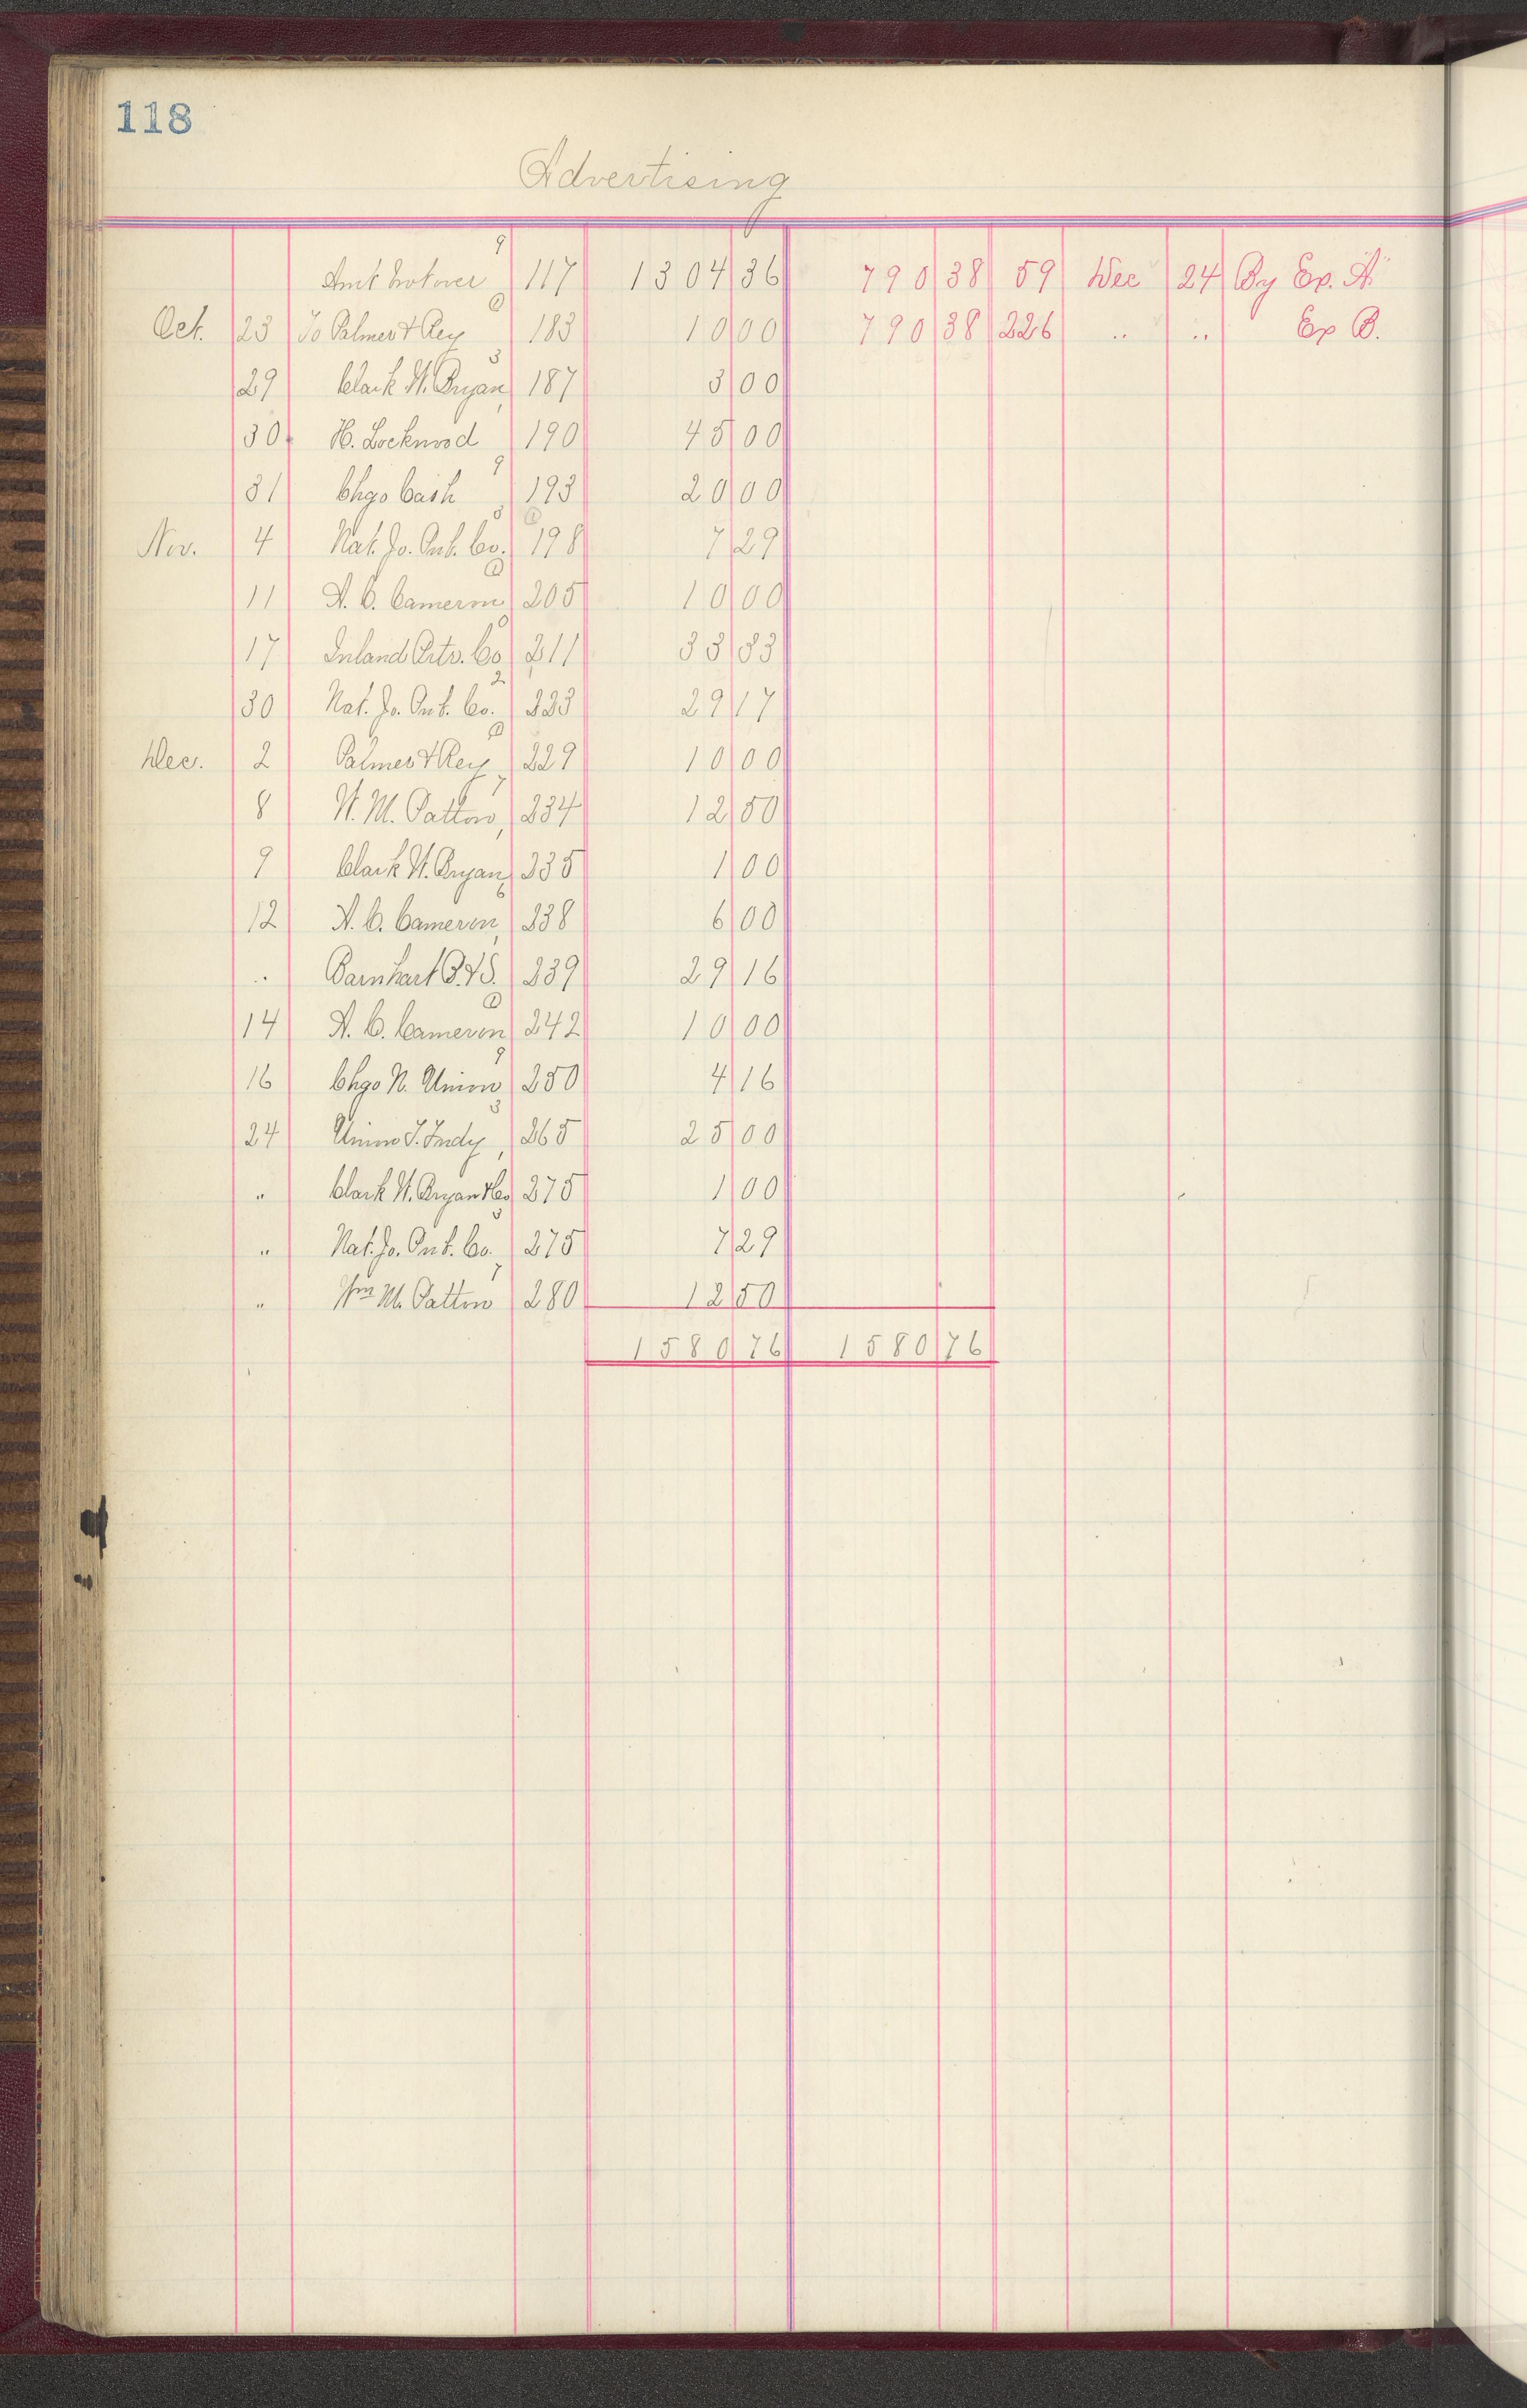 118
Advertising
9
Amt brot over 117 1304 36 790 38 59 Dec 24 By Ex. "A"
1
Oct. 23 To Palmer & Rey 183 10 00 790 38 226 .. .. Ex B.
3
29 Clark W. Bryan, 187 3 00
30 H. Lockwood 190 45 00
9
31 Chgo Cash 193 20 00
3 1
Nov. 4 Nat. Jo. Prt. Co. 198 7 29
1
11 A. C. Cameron 205 10 00
17 Inland Prtr. Co 211 33 33
2
30 Nat. Jo. Prt. Co. 223 29 17
1
Dec. 2 Palmer & Rey 229 10 00
7
8 W. M. Patton, 234 12 50
9 Clark W. Bryan, 235 1 00
6
12 A. C. Cameron, 238 6 00
.. Barnhart B. & S. 239 29 16
1
14 A. C. Cameron 242 10 00
9
16 Chgo N. Union 250 4 16
3
24 Union T. Fndy, 265 25 00
" Clark W. Bryan & Co 275 1 00
3
" Nat. Jo. Prt. Co. 275 7 29
7
" Wm M. Patton 280 12 50
1580 76 1580 76